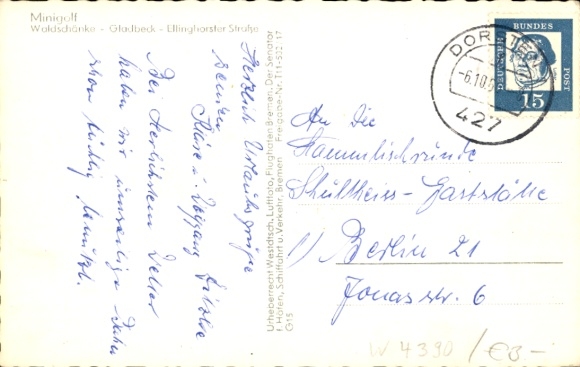 Minigolf
Waldschänke - Gladbeck - Ellinghorster Straße
Herzlich Urlaubsgrüße
senden
Kläre u. Wolfgang
Bei herrlichstem Wetter
haben wir unsere
schon tüchtig
Urheberrecht Westdtsch. Luftfoto, Flughafen Bremen. Der Senator
f. Häfen, Schiffahrt u. Verkehr, Bremen Freigabe-Nr.
G15
DORSTEN
-6.10.
427
DEUTSCHE BUNDESPOST
15
An Die
Stammtischrunde
Schultheiss-Gaststätte
1) Berlin 21
Jonasstr. 6
W 4390 / €3-